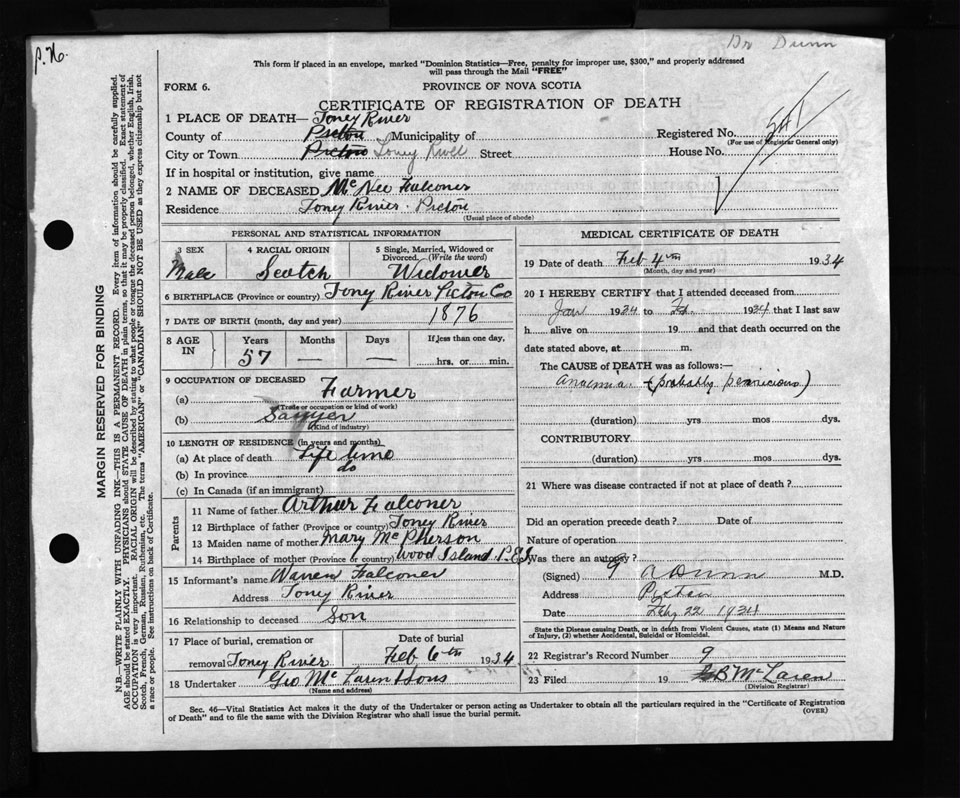 P.H.
Dr Dunn
This form if placed in an envelope, marked "Dominion Statistics—Free, penalty for improper use, $300," and properly addressed
will pass through the Mail "FREE"
FORM 6.
PROVINCE OF NOVA SCOTIA
CERTIFICATE OF REGISTRATION OF DEATH
1 PLACE OF DEATH— Toney River
County of Pictou Municipality of
Registered No.
(For use of Registrar General only)
City or Town Pictou Toney River Street House No.
If in hospital or institution, give name
2 NAME OF DECEASED McNee Falconer
Residence Toney River. Pictou
(Usual place of abode)
PERSONAL AND STATISTICAL INFORMATION
3 SEX Male
4 RACIAL ORIGIN Scotch
5 Single, Married, Widowed or Divorced. (Write the word) Widower
6 BIRTHPLACE (Province or country) Toney River Pictou Co
7 DATE OF BIRTH (month, day and year) 1876
8 AGE IN Years 57 Months — Days — If less than one day, hrs. or min.
9 OCCUPATION OF DECEASED
(a) Farmer
(Trade or occupation or kind of work)
(b) Sawyer
(Kind of industry)
10 LENGTH OF RESIDENCE (in years and months)
(a) At place of death Life time
(b) In province do
(c) In Canada (if an immigrant)
Parents
11 Name of father Arthur Falconer
12 Birthplace of father (Province or country) Toney River
13 Maiden name of mother Mary McPherson
14 Birthplace of mother (Province or country) Wood Island P.E.I.
15 Informant's name Warren Falconer
Address Toney River
16 Relationship to deceased Son
17 Place of burial, cremation or removal Toney River
Date of burial Feb 6th 1934
18 Undertaker Geo McLaren & Sons
(Name and address)
MEDICAL CERTIFICATE OF DEATH
19 Date of death Feb 4th 1934
(Month, day and year)
20 I HEREBY CERTIFY that I attended deceased from
Jan 1934 to Feb. 1934 that I last saw
h alive on 19 and that death occurred on the
date stated above, at m.
The CAUSE of DEATH was as follows:—
Anaemia (probably pernicious)
(duration) yrs mos dys.
CONTRIBUTORY
(duration) yrs mos dys.
21 Where was disease contracted if not at place of death?
Did an operation precede death? Date of
Nature of operation
Was there an autopsy?
(Signed) Dunn M.D.
Address Pictou
Date Feby 22 1934
State the Disease causing Death, or in death from Violent Causes, state (1) Means and Nature
of Injury, (2) whether Accidental, Suicidal or Homicidal.
22 Registrar's Record Number 9
23 Filed 19 B McLaren
(Division Registrar)
Sec. 46—Vital Statistics Act makes it the duty of the Undertaker or person acting as Undertaker to obtain all the particulars required in the "Certificate of Registration
of Death" and to file the same with the Division Registrar who shall issue the burial permit.
(OVER)
MARGIN RESERVED FOR BINDING
N.B.—WRITE PLAINLY WITH UNFADING INK—THIS IS A PERMANENT RECORD. Every item of information should be carefully supplied.
AGE should be stated EXACTLY. PHYSICIANS should STATE CAUSE OF DEATH in plain terms, so that it may be properly classified. Exact statement of
OCCUPATION is very important. RACIAL ORIGIN will be described by stating to what people or tongue the deceased person belonged, whether English, Irish,
Scotch, French, German, Russian, Ruthenian, etc. The terms "AMERICAN" or "CANADIAN" SHOULD NOT BE USED as they express citizenship but not
a race or people. See instructions on back of Certificate.